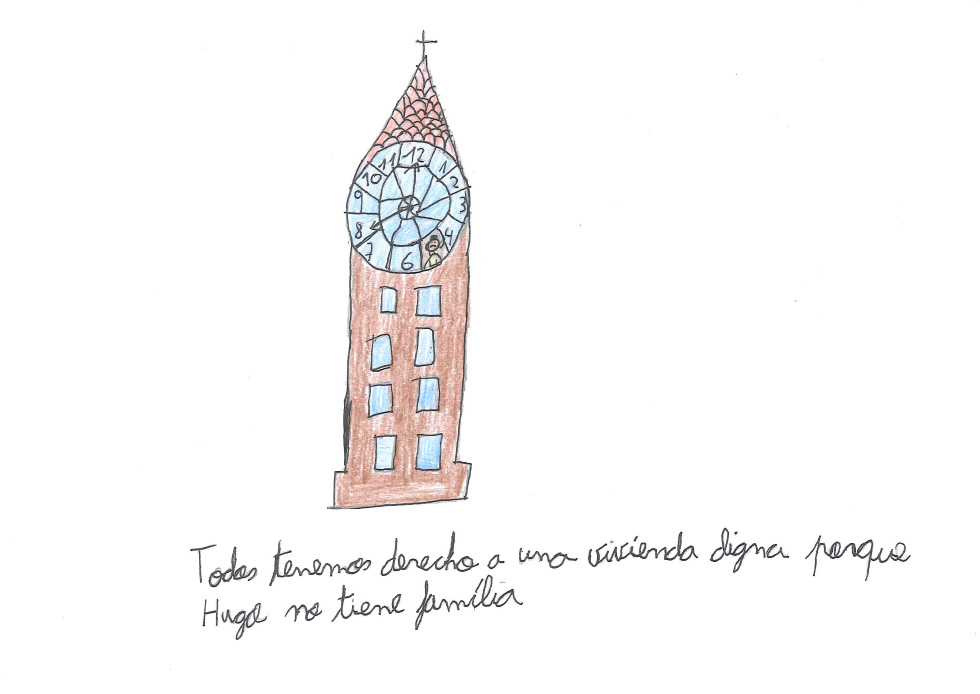 11 12 1
10 2
9 3
8 4
7 6
Todos tenemos derecho a una vivienda digna porque
Hugo no tiene família